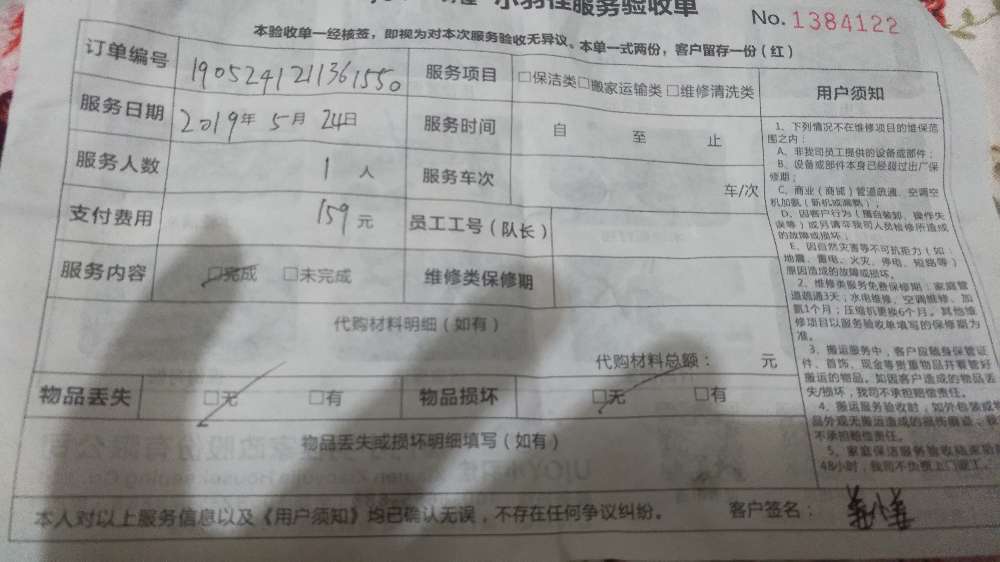 小羽佳服务验收单
No. 1384122
本验收单一经核签，即视为对本次服务验收无异议。本单一式两份，客户留存一份（红）
订单编号 190524121136 1550 服务项目 □保洁类□搬家运输类□维修清洗类 用户须知
服务日期 2019年 5月 24日 服务时间 自 至 止
服务人数 1 人 服务车次 车/次
支付费用 159 元 员工工号（队长）
服务内容 □完成 □未完成 维修类保修期
代购材料明细（如有）
代购材料总额： 元
物品丢失 □无 □有 物品损坏 □无 □有
物品丢失或损坏明细填写（如有）
本人对以上服务信息以及《用户须知》均已确认无误，不存在任何争议纠纷。 客户签名：
1、下列情况不在维修项目的维保范
围之内：
A、非我司员工提供的设备或部件；
B、设备或部件本身已经超过出厂保
修期；
C、商业（商铺）管道疏通、空调空
机加氨（新机或漏氨）；
D、因客户行为（擅自装卸、操作失
误等）或另请非我司人员检修所造成
的故障或损坏；
E、因自然灾害等不可抗拒力（如：
地震、雷电、火灾、停电、短路等）
原因造成的故障或损坏。
2、维修类服务免费保修期：家庭管
道疏通3天；水电维修、空调维修、加
氨1个月；压缩机更换6个月。其他维
修项目以服务验收单填写的保修期为
准。
3、搬运服务中，客户应随身保管证
件、首饰、现金等贵重物品并看管好
搬运的物品。如因客户造成的物品丢
失/损坏，我司不承担赔偿责任。
4、搬运服务验收时，如外包装或物
品外观无搬运造成的损伤痕迹，我
不承担赔偿责任。
5、家庭保洁服务验收结束后
48小时，我司不负责上门返工。